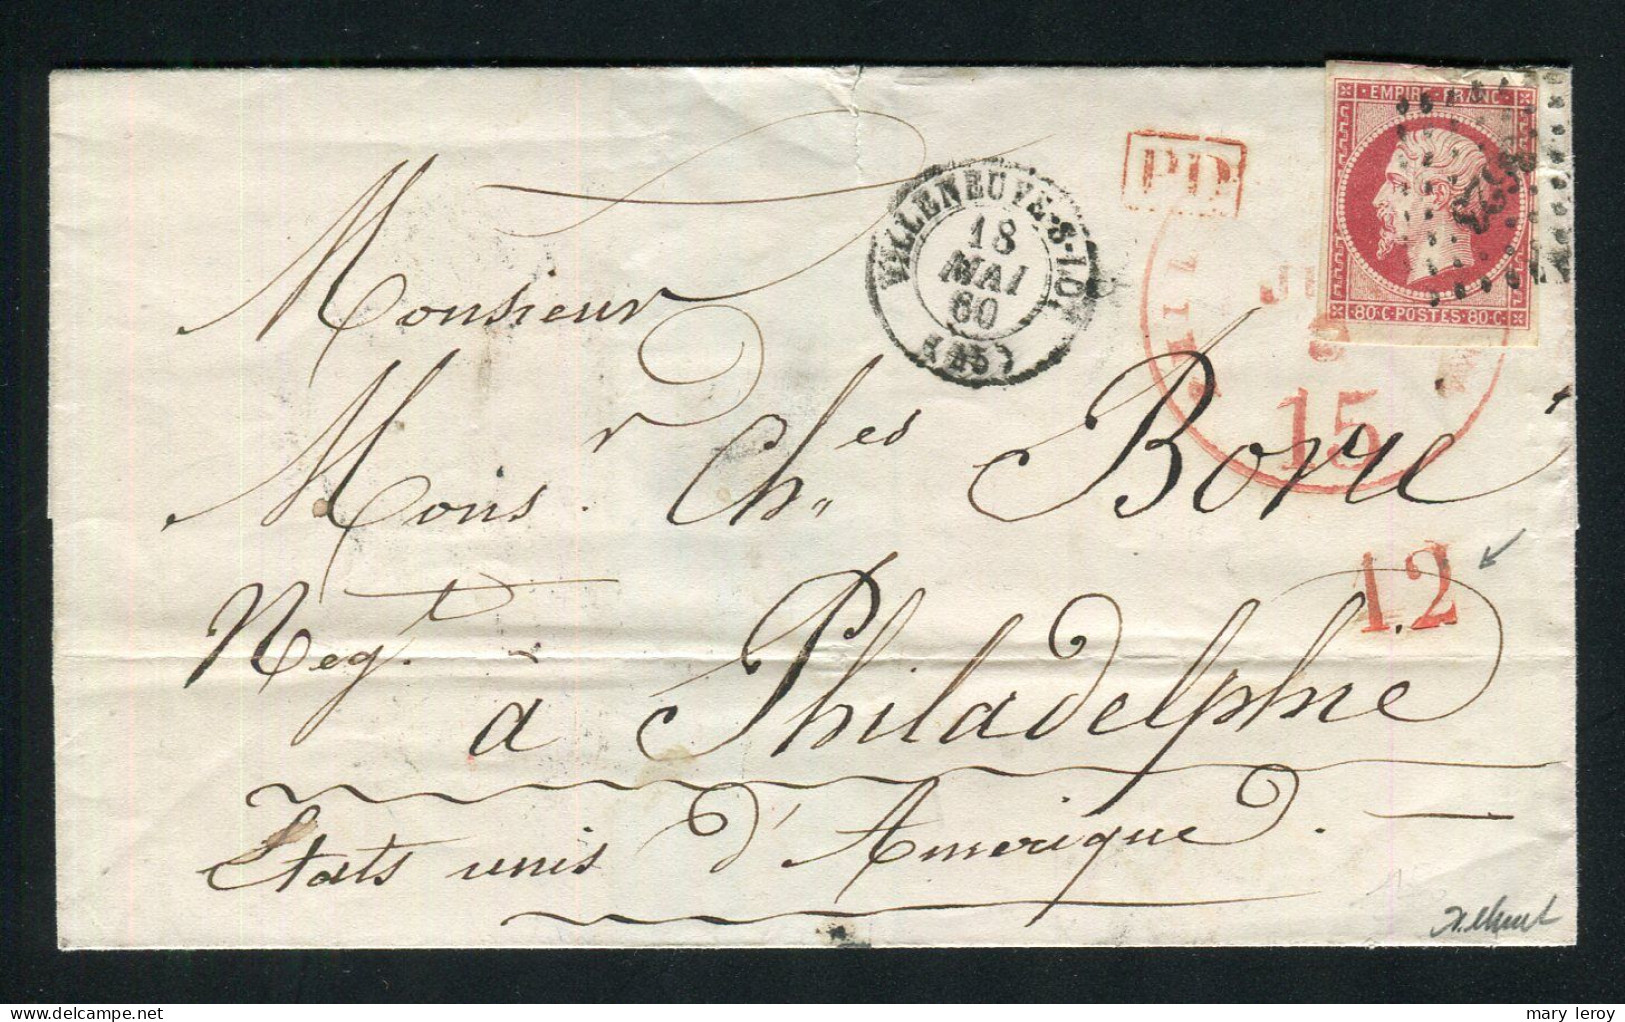 EMPIRE FRANC
3623
80·C·POSTES·80·C·
PD
VILLENEUVE-S-LOT
18
MAI
60
(45)
15
12
Monsieur
Mons.r Ch.es Borie
Neg.t
a Philadelphie
Etats unis d'Amerique.
mary leroy